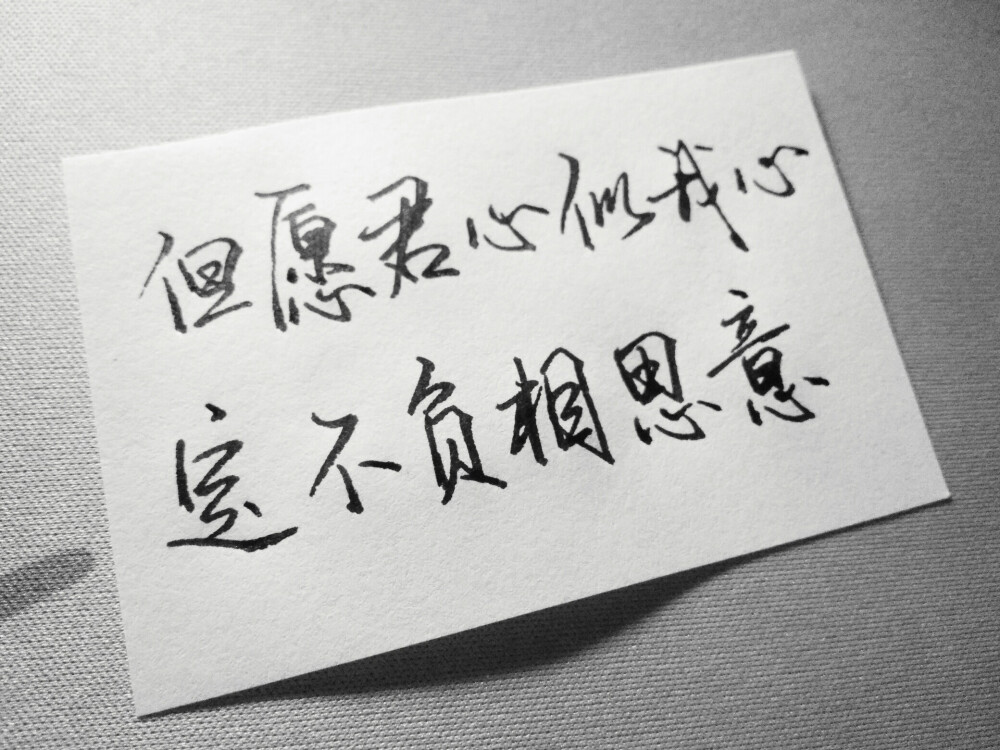 但愿君心似我心
定不负相思意